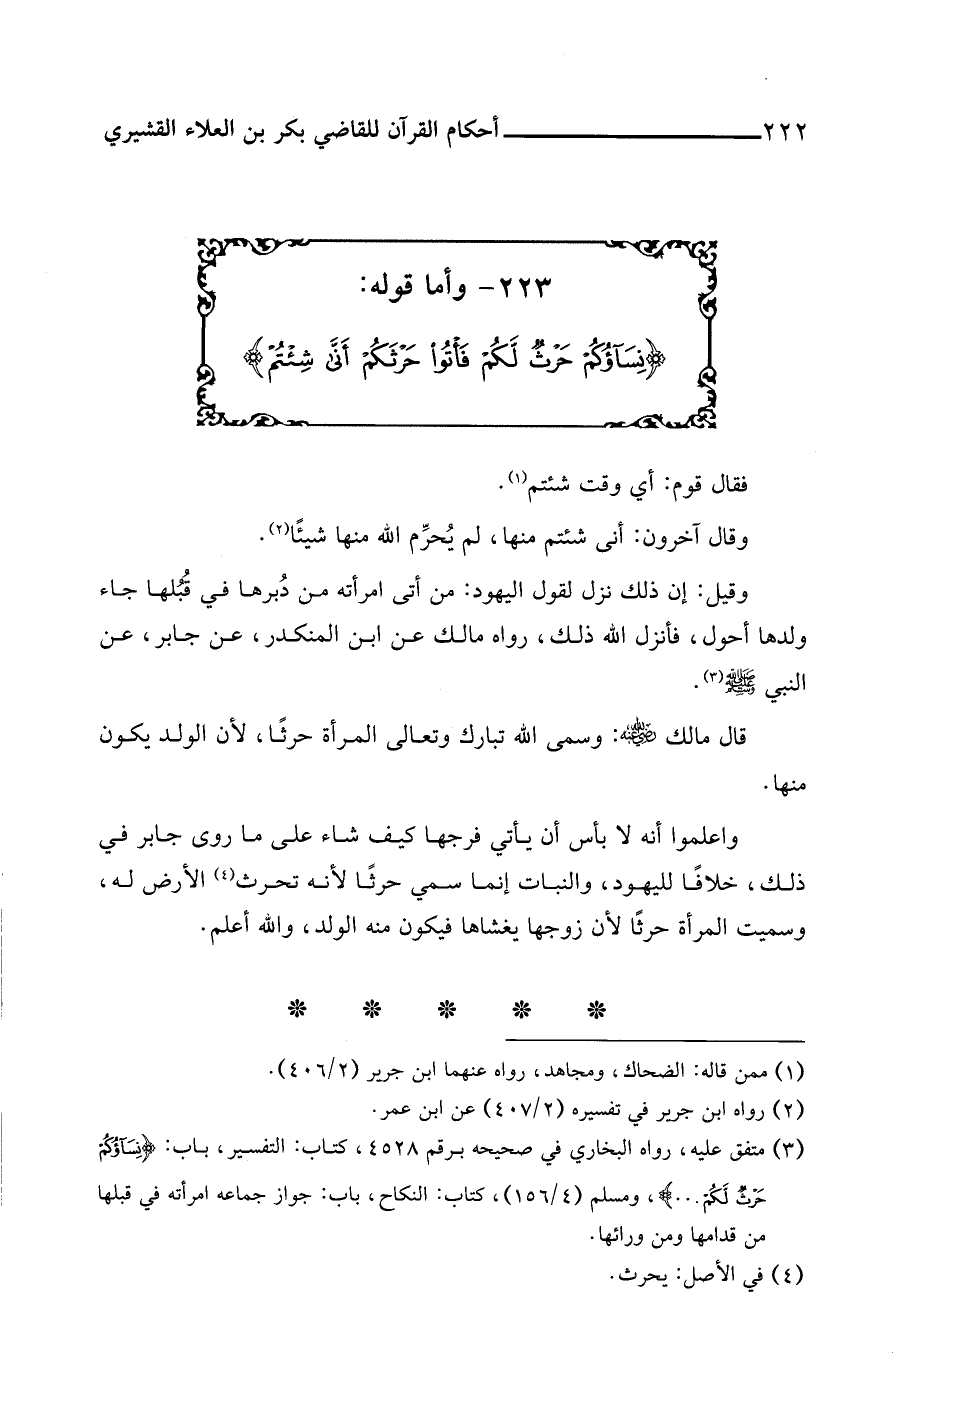 ٢٢٢ أحكام القرآن للقاضي بكر بن العلاء القشيري
٢٢٣- وأما قوله:
﴿نِسَآؤُكُمْ حَرْثٌ لَّكُمْ فَأْتُوا۟ حَرْثَكُمْ أَنَّىٰ شِئْتُمْ﴾
فقال قوم: أي وقت شئتم(١).
وقال آخرون: أنى شئتم منها، لم يُحرِّم الله منها شيئًا(٢).
وقيل: إن ذلك نزل لقول اليهود: من أتى امرأته من دُبرها في قُبُلها جاء
ولدها أحول، فأنزل الله ذلك، رواه مالك عن ابن المنكدر، عن جابر، عن
النبي ﷺ(٣).
قال مالك رضي الله عنه: وسمى الله تبارك وتعالى المرأة حرثًا، لأن الولد يكون
منها.
واعلموا أنه لا بأس أن يأتي فرجها كيف شاء على ما روى جابر في
ذلك، خلافًا لليهود، والنبات إنما سمي حرثًا لأنه تحرث(٤) الأرض له،
وسميت المرأة حرثًا لأن زوجها يغشاها فيكون منه الولد، والله أعلم.
(١) ممن قاله: الضحاك، ومجاهد، رواه عنهما ابن جرير (٤٠٦/٢).
(٢) رواه ابن جرير في تفسيره (٤٠٧/٢) عن ابن عمر.
(٣) متفق عليه، رواه البخاري في صحيحه برقم ٤٥٢٨، كتاب: التفسير، باب: ﴿نِسَآؤُكُمْ
حَرْثٌ لَّكُمْ...﴾، ومسلم (١٥٦/٤)، كتاب: النكاح، باب: جواز جماعه امرأته في قبلها
من قدامها ومن ورائها.
(٤) في الأصل: يحرث.